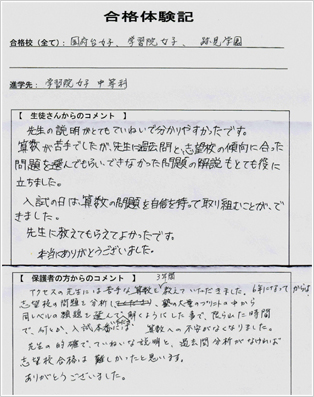 合格体験記
合格校(全て): 国府台女子、学習院女子、跡見学園
進学先: 学習院女子中等科
【 生徒さんからのコメント 】
先生の説明がとてもていねいで分かりやすかったです。
算数が苦手でしたが、先生に過去問と、志望校の傾向に合った
問題を選んでもらい、できなかった問題の解説もとても役に
立ちました。
入試の日は、算数の問題を自信を持って取り組むことが、で
きました。
先生に教えてもらえてよかったです。
本当にありがとうございました。
【 保護者の方からのコメント 】 3年間
アクセスの先生には苦手な算数を教えていただきました。6年になってからは
志望校の問題を分析し、大量のプリントの中から
同レベルの類題を選んで解くようにした事で、限られた時間
で、入試本番には算数への不安がなくなりました。
先生の的確で、ていねいな説明と、過去問分析がなければ
志望校合格は難しかったと思います。
ありがとうございました。